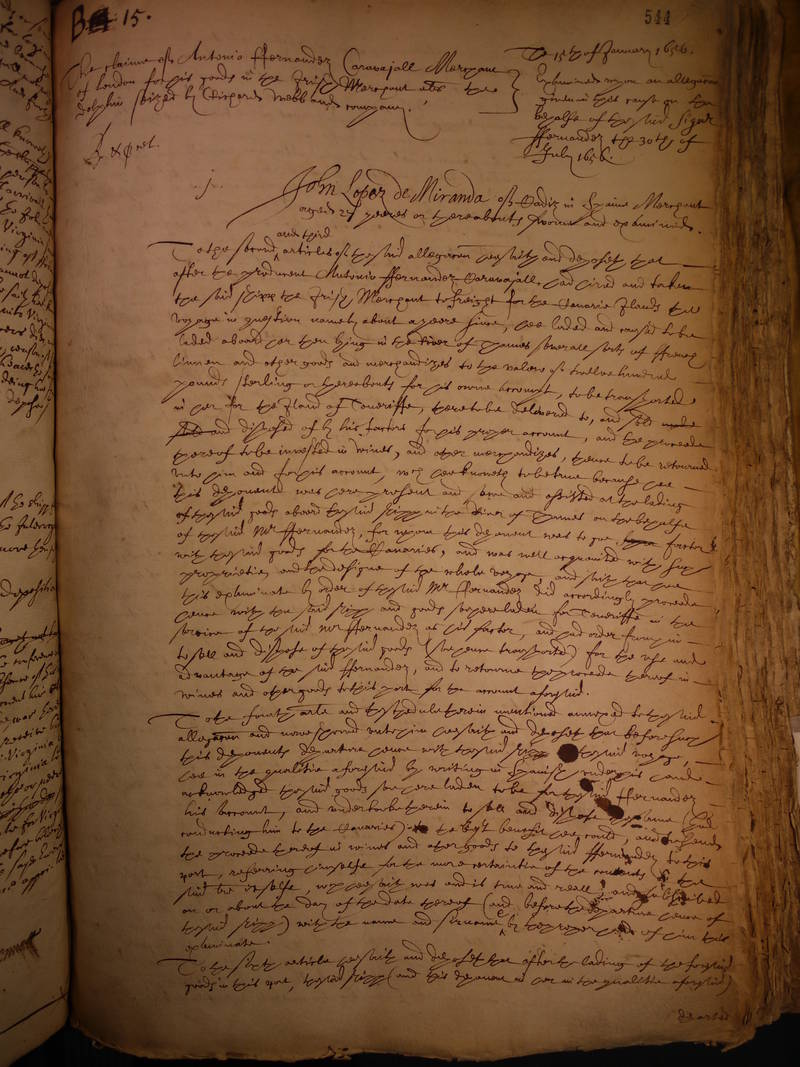 B 15.
544
The claime of Antonio Ffernandez Caravajall Merchant
of London for his goods in the Irish Merchant als the
dolphin seized by Cliperd Webb and company.
The 15th of January 1656.
Examined upon an allegacon
given in this cause on the
behalfe of the said Signor
Ffernandez the 30th of
July 1656.
j.
John Lopez de Miranda of Cadiz in Spaine Merchant
aged 27 yeeres or thereabouts sworne and examined.
and third
To the second articles of the said allegacon hee saith and deposeth that
after the producent Antonio Ffernandez Caravajall had hired and taken
the said shipp the Irish Merchant to freight for the Canarie Ilands the
voyage in question namely about a yeere since, hee laded and caused to be
laded aboard her then lying in the River of Thames severall sorts of ffrench
linnen and other goods and merchandizes to the valew of twelve hundred
pounds sterling or thereabouts for his owne account, to be transported
in her for the Iland of Teneriffe, there to be delivered to, and sold
and disposed of by his factors for his proper account, and the proceede
thereof to be invested in wines, and other merchandizes, thence to be retourned
unto him and for his account, which hee knoweth to be true because hee
this deponent was here present and sawe and assisted at the lading
of the said goods aboard the said shipp in the River of Thames on the behalfe
of the said Mr Ffernandez, for whom this deponent was to goe factor
with the said goods for the Canaries, and was well acquainted with the
proprietie and the designe of the whole voyage, and saith that hee
this examinate by order of the said Mr Ffernandez did accordingly proceede
hence with the said shipp and goods soe here laden for Teneriffe in the
service of the said Mr Ffernandez as his factor, and had order from him
to sell and dispose of the said goods (soe hence transported) for the use and
advantage of the said Ffernandez, and to retourne the proceede thereof in
wines and other goods to this port for the account aforesaid.
To the fourth article and the schedule therein mentioned annexed to the said
allegacon and nowe shewed unto him hee saith and deposeth that before
this deponents departure hence with the said shipp the said voyage,
hee in the qualitie aforesaid by writing in Spanish under his hand
acknowledged the said goods soe here laden to be for the said Ffernandez
his account, and undertooke therein to sell and dispose the same (God
conducting him to the Canaries) to the best benefit hee could, and to send
the proceede thereof in wines and other goods to the said Ffernandez to this
port, referring himselfe for the more certaintie of the contents to the
said it selfe, which hee saith was and is true and reall and subscribed
on or about the day of the date thereof (and before the departure hence of
the said shipp) with the name and sirname by the proper hand of him this
examinate.
To the sixth article hee saith and deposeth that after the lading of the foresaid
goods in this port, the said shipp (and this deponent in her in the qualitie aforesaid)
departed